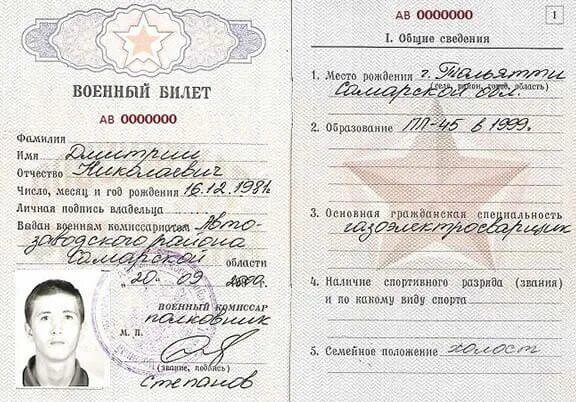 ВОЕННЫЙ БИЛЕТ
АВ 0000000
Фамилия
Имя Дмитрий
Отчество Николаевич
Число, месяц и год рождения 16.12.1981г
Личная подпись владельца
Выдан военным комиссариатом Авто-
заводского района
Самарской области
„20“ 09 2000г.
ВОЕННЫЙ КОМИССАР
полковник
М. П.
(звание, подпись)
Степанов
АВ 0000000
1
I. Общие сведения
1. Место рождения г. Тольятти
(село, район, город, область)
Самарской обл.
2. Образование ПЛ-45 в 1999г.
3. Основная гражданская специальность
газоэлектросварщик
4. Наличие спортивного разряда (звания)
и по какому виду спорта
5. Семейное положение холост